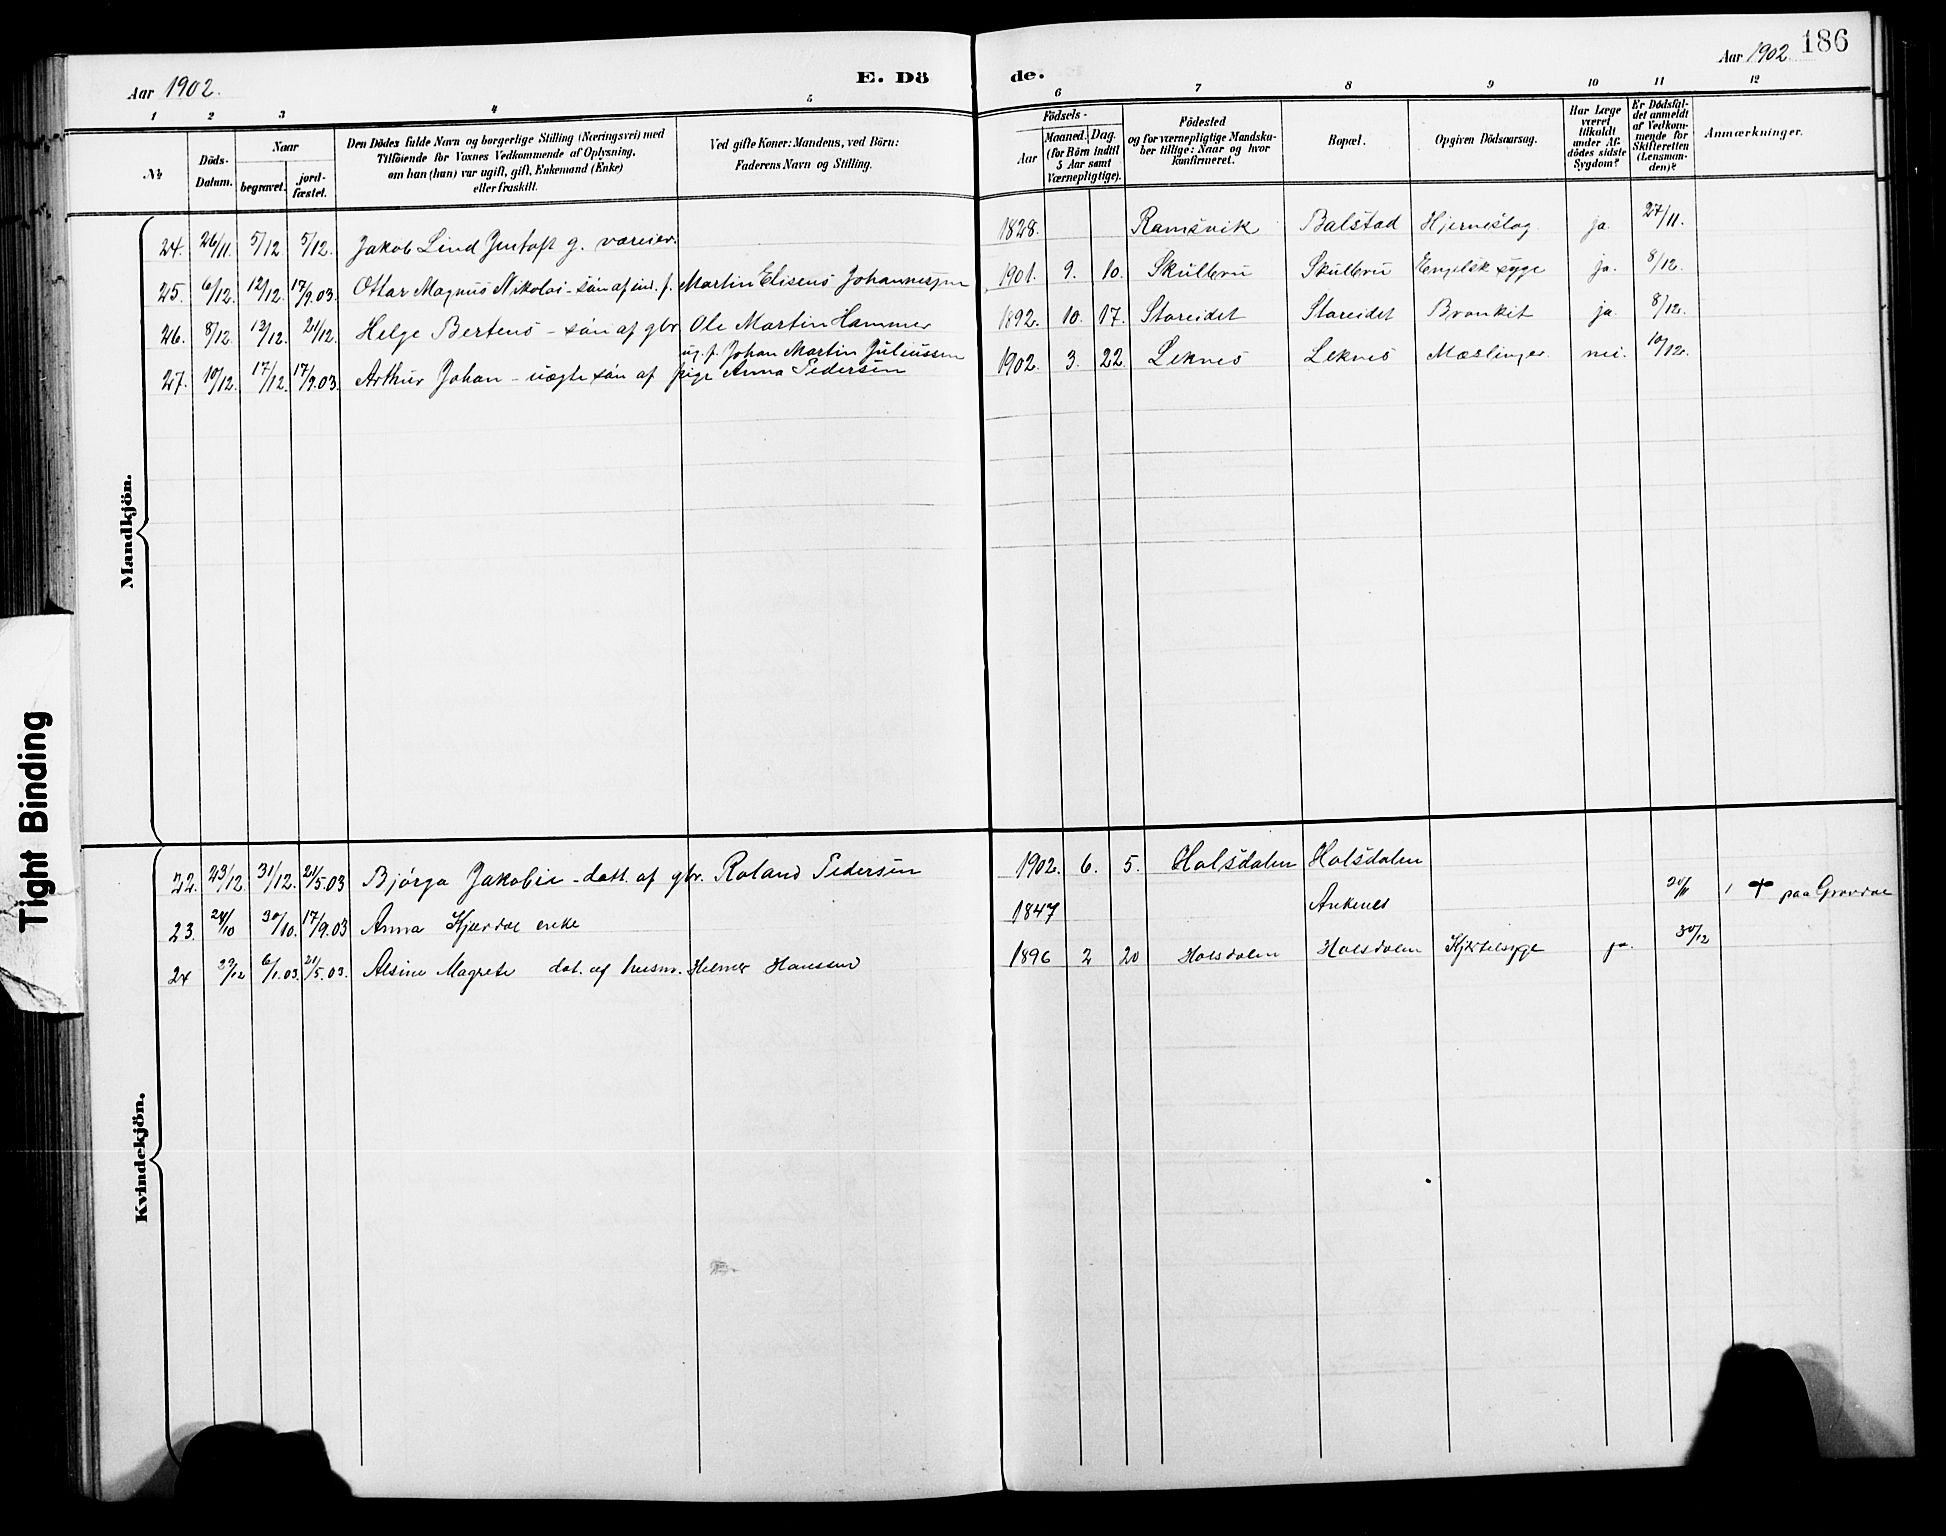 Aar 1902. E. Dö de. Aar 1902. 186
1 2 3 4 5 6 7 8 9 10 11 12
№
Döds-Datum.
Naar
begravet.
jord-fæstet.
Den Dödes fulde Navn og borgerlige Stilling (Næringsvei) med
Tilföiende for Voxnes Vedkommende af Oplysning,
om han (hun) var ugift, gift, Enkemand (Enke)
eller fraskilt.
Ved gifte Koner: Mandens, ved Börn:
Faderens Navn og Stilling.
Födsels-
Aar
Maaned. Dag.
(for Börn indtil
5 Aar samt
Værnepligtige).
Födested
og for værnepligtige Mandsku-
ber tillige: Naar og hvor
konfirmeret.
Bopæl.
Opgiven Dödsaarsag.
Har Læge
været
tilkaldt
under Af-
dödes sidste
Sygdom?
Er Dödsfal-
det anmeldt
af Vedkom-
mende for
Skifteretten
(Lensman-
den)?
Anmærkninger.
Mandkjön.
24. 26/11 5/12 5/12. Jakob Lind Jentoft g. væreier. 1828. Ramsvik Balstad Hjerneslag ja. 27/11.
25. 6/12. 12/12. 17/9.03. Ottar Magnus Nikolai - sön af ind. f. Martin Eliseus Johannessen 1901. 9. 10. Skulbru Skulbru Engelsk syge ja. 8/12.
26. 8/12. 12/12. 21/12. Helge Berteus - sön af gbr. Ole Martin Hammer 1892. 10. 17. Storeidet Storeidet Bronkit ja. 8/12.
ug. f. Johan Martin Juliussen
27. 10/12. 17/12. 17/9.03. Arthur Johan - uægte sön af pige Anna Pedersen 1902. 3. 22. Leknes Leknes Mæslinger. nei. 10/12.
Kvindekjön.
22. 23/12. 31/12. 21/5.03 Bjórga Jakobia - datt. af gbr. Roland Pedersen 1902. 6. 5. Holsdalen Holsdalen
23. 24/10 30/10. 17/9.03 Anna Kjærdal enke 1847 20/11 1 + paa Gravdal
24 29/12 6/1.03. 21/5.03. Alsine Magrete dat. af husm. Helmer Hansen 1896 2 20 Holsdalen Holsdalen Kjertelsyge ja. 30/12
Tight Binding